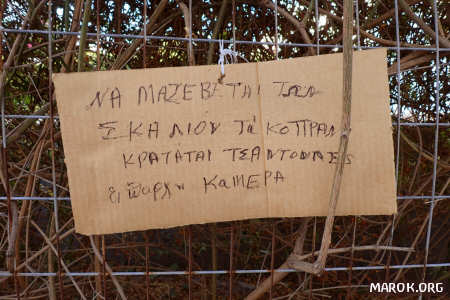 ΝΑ ΜΑΖΕΒΕΤΑΙ ΤΩΝ
ΣΚΑΛΙΟΝ ΤΑ ΚΟΠΡΑΝ
ΚΡΑΤΑΤΑΙ ΤΣΑΝΤΟΝΑΣ
ΚΑΜΕΡΑ
MAROK.ORG